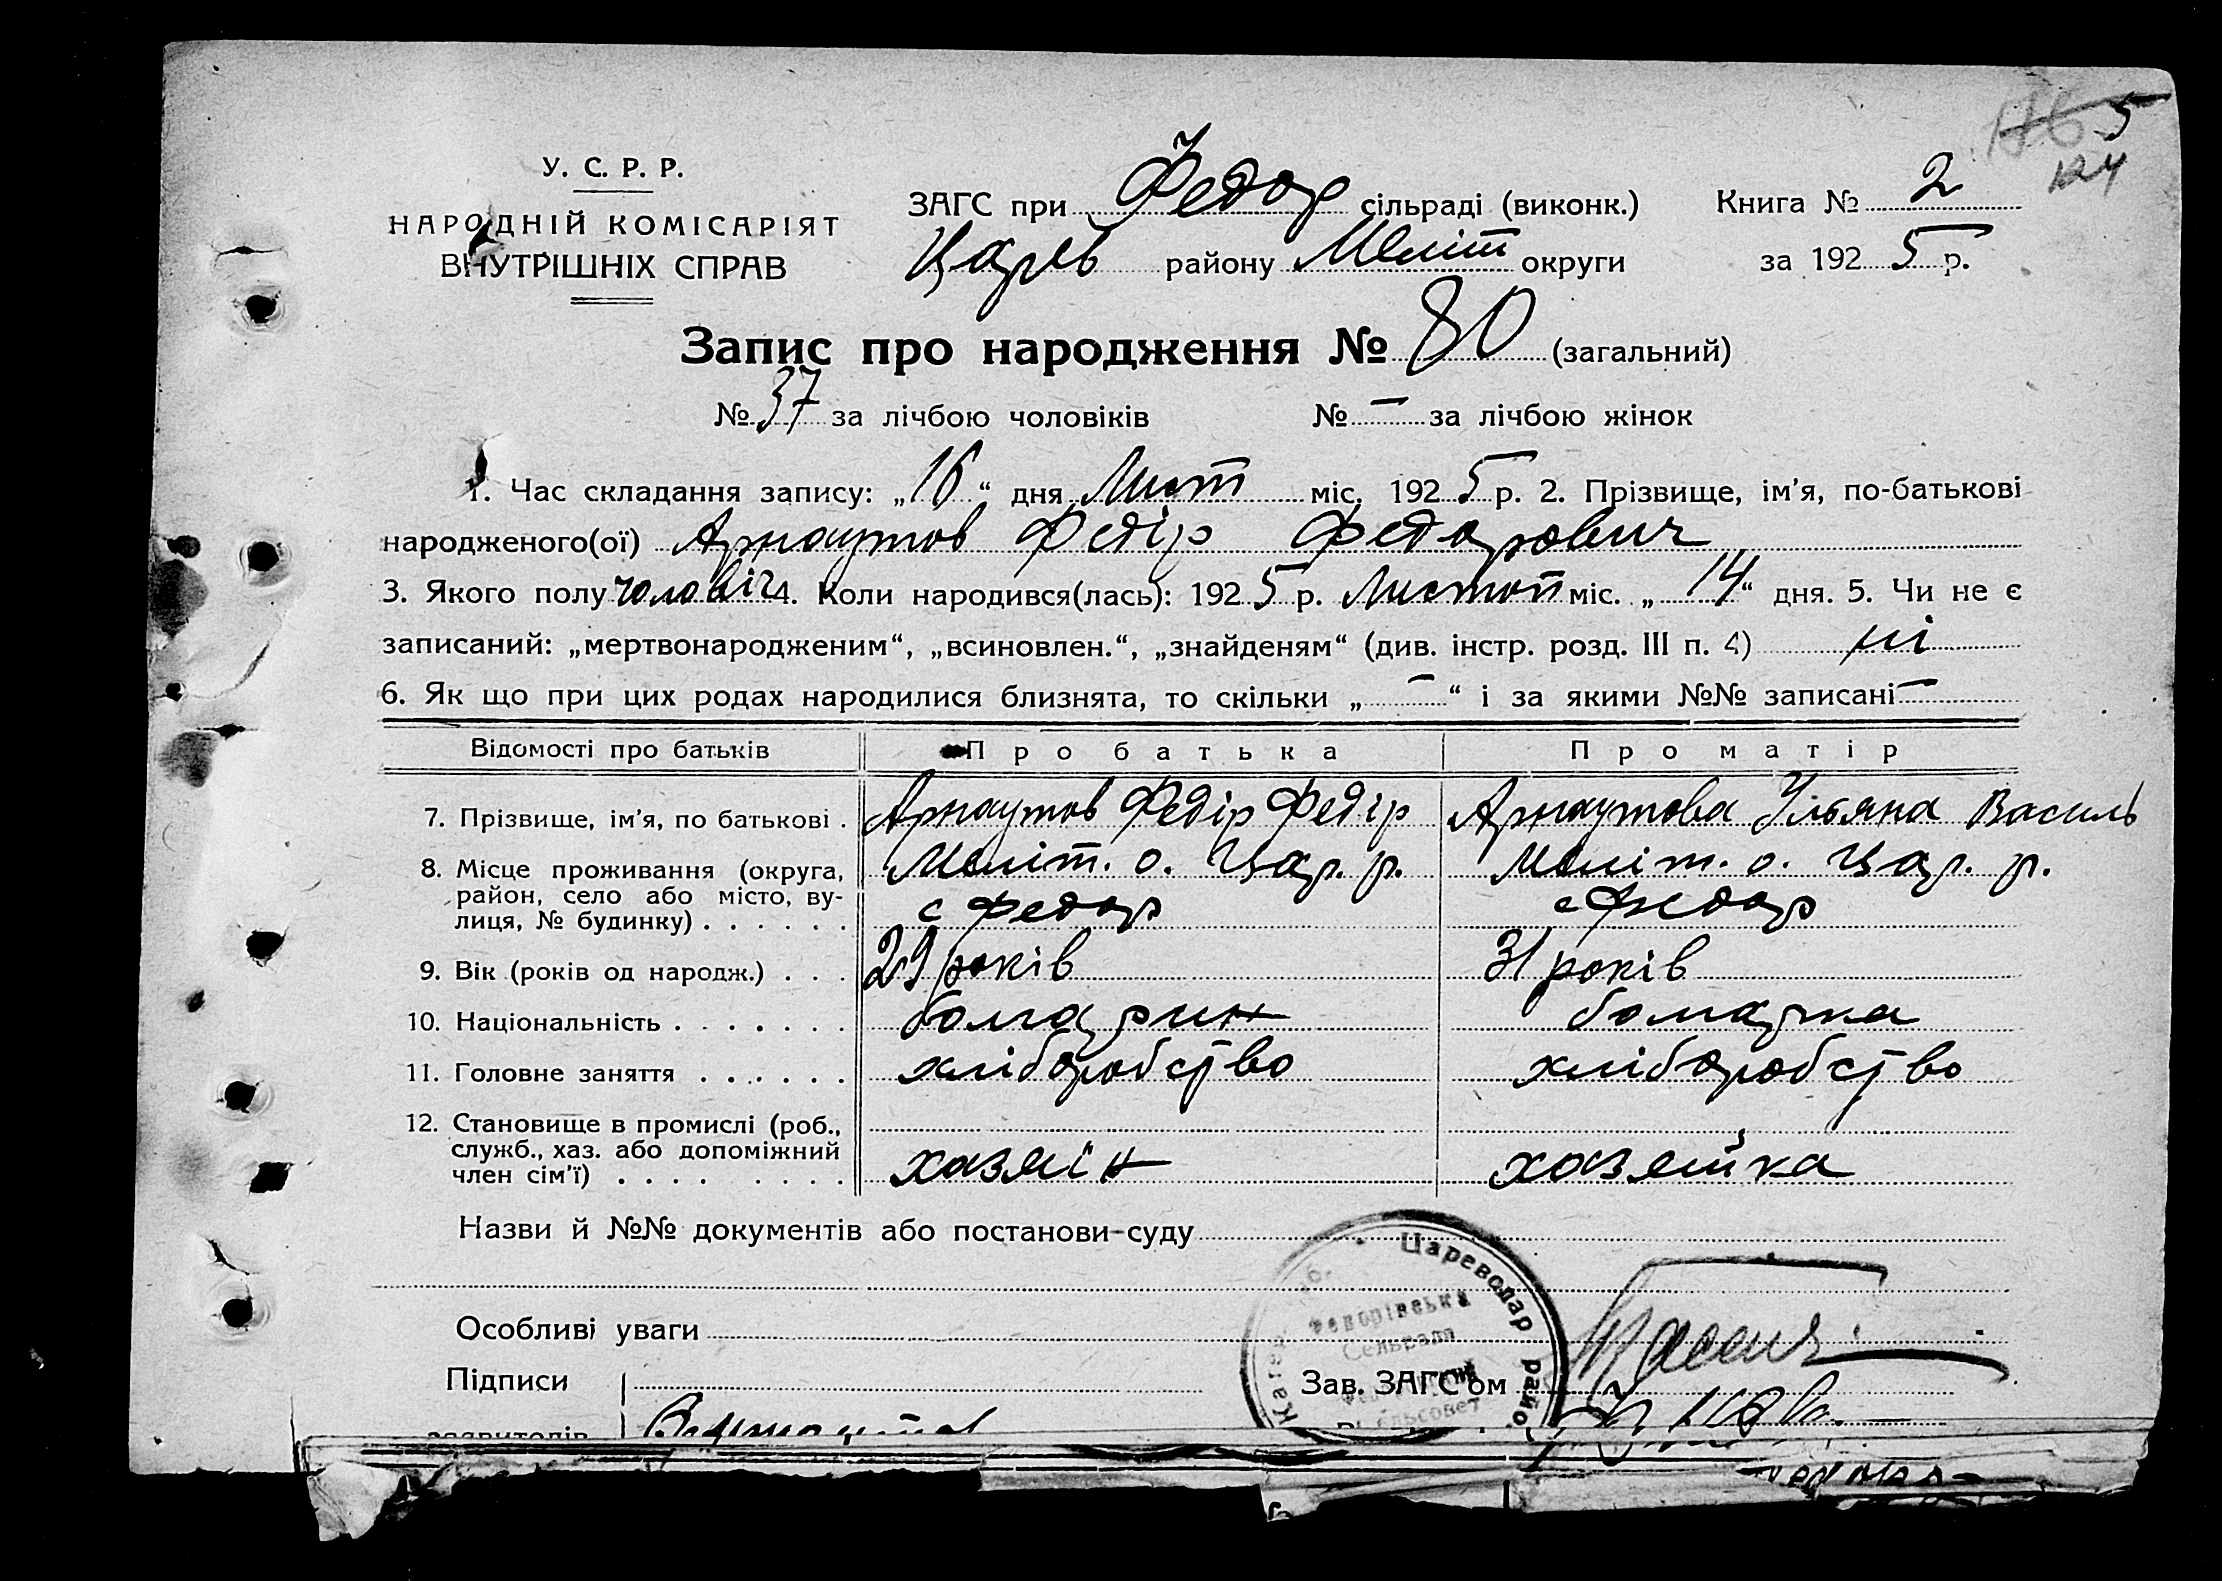 5
124
У. С. Р. Р.
НАРОДНІЙ КОМІСАРІЯТ
ВНУТРІШНІХ СПРАВ
ЗАГС при Федор сільраді (виконк.) Книга № 2
Царев району Меліт округи за 1925 р.
Запис про народження № 80 (загальний)
№ 37 за лічбою чоловіків № — за лічбою жінок
1. Час складання запису: „16“ дня Лист міс. 1925 р. 2. Прізвище, ім'я, по-батькові
народженого(ої) Арнаутов Федір Федорович
3. Якого полу чоловіч 4. Коли народився(лась): 1925 р. Листоп міс. „14“ дня. 5. Чи не є
записаний: „мертвонародженим“, „всиновлен.“, „знайденям“ (див. інстр. розд. III п. 4) ні
6. Як що при цих родах народилися близнята, то скільки „—“ і за якими №№ записані —
Відомості про батьків Про батька Про матір
7. Прізвище, ім'я, по батькові . Арнаутов Федір Федір Арнаутова Ульяна Василь
8. Місце проживання (округа, Меліт. о. Цар. р. Меліт. о. Цар. р.
район, село або місто, ву-
лиця, № будинку) . . . . . . с Федор с Федор
9. Вік (років од народж.) . . . 29 років 31 років
10. Національність . . . . . . . болгарин болгарка
11. Головне заняття . . . . . . хліборобство хліборобство
12. Становище в промислі (роб.,
служб., хаз. або допоміжний
член сім'ї) . . . . . . . . хазяїн хазяйка
Назви й №№ документів або постанови суду
Цареводар район
Федорівська
Сельрада
Особливі уваги
Підписи Зав. ЗАГС'ом
заявителів